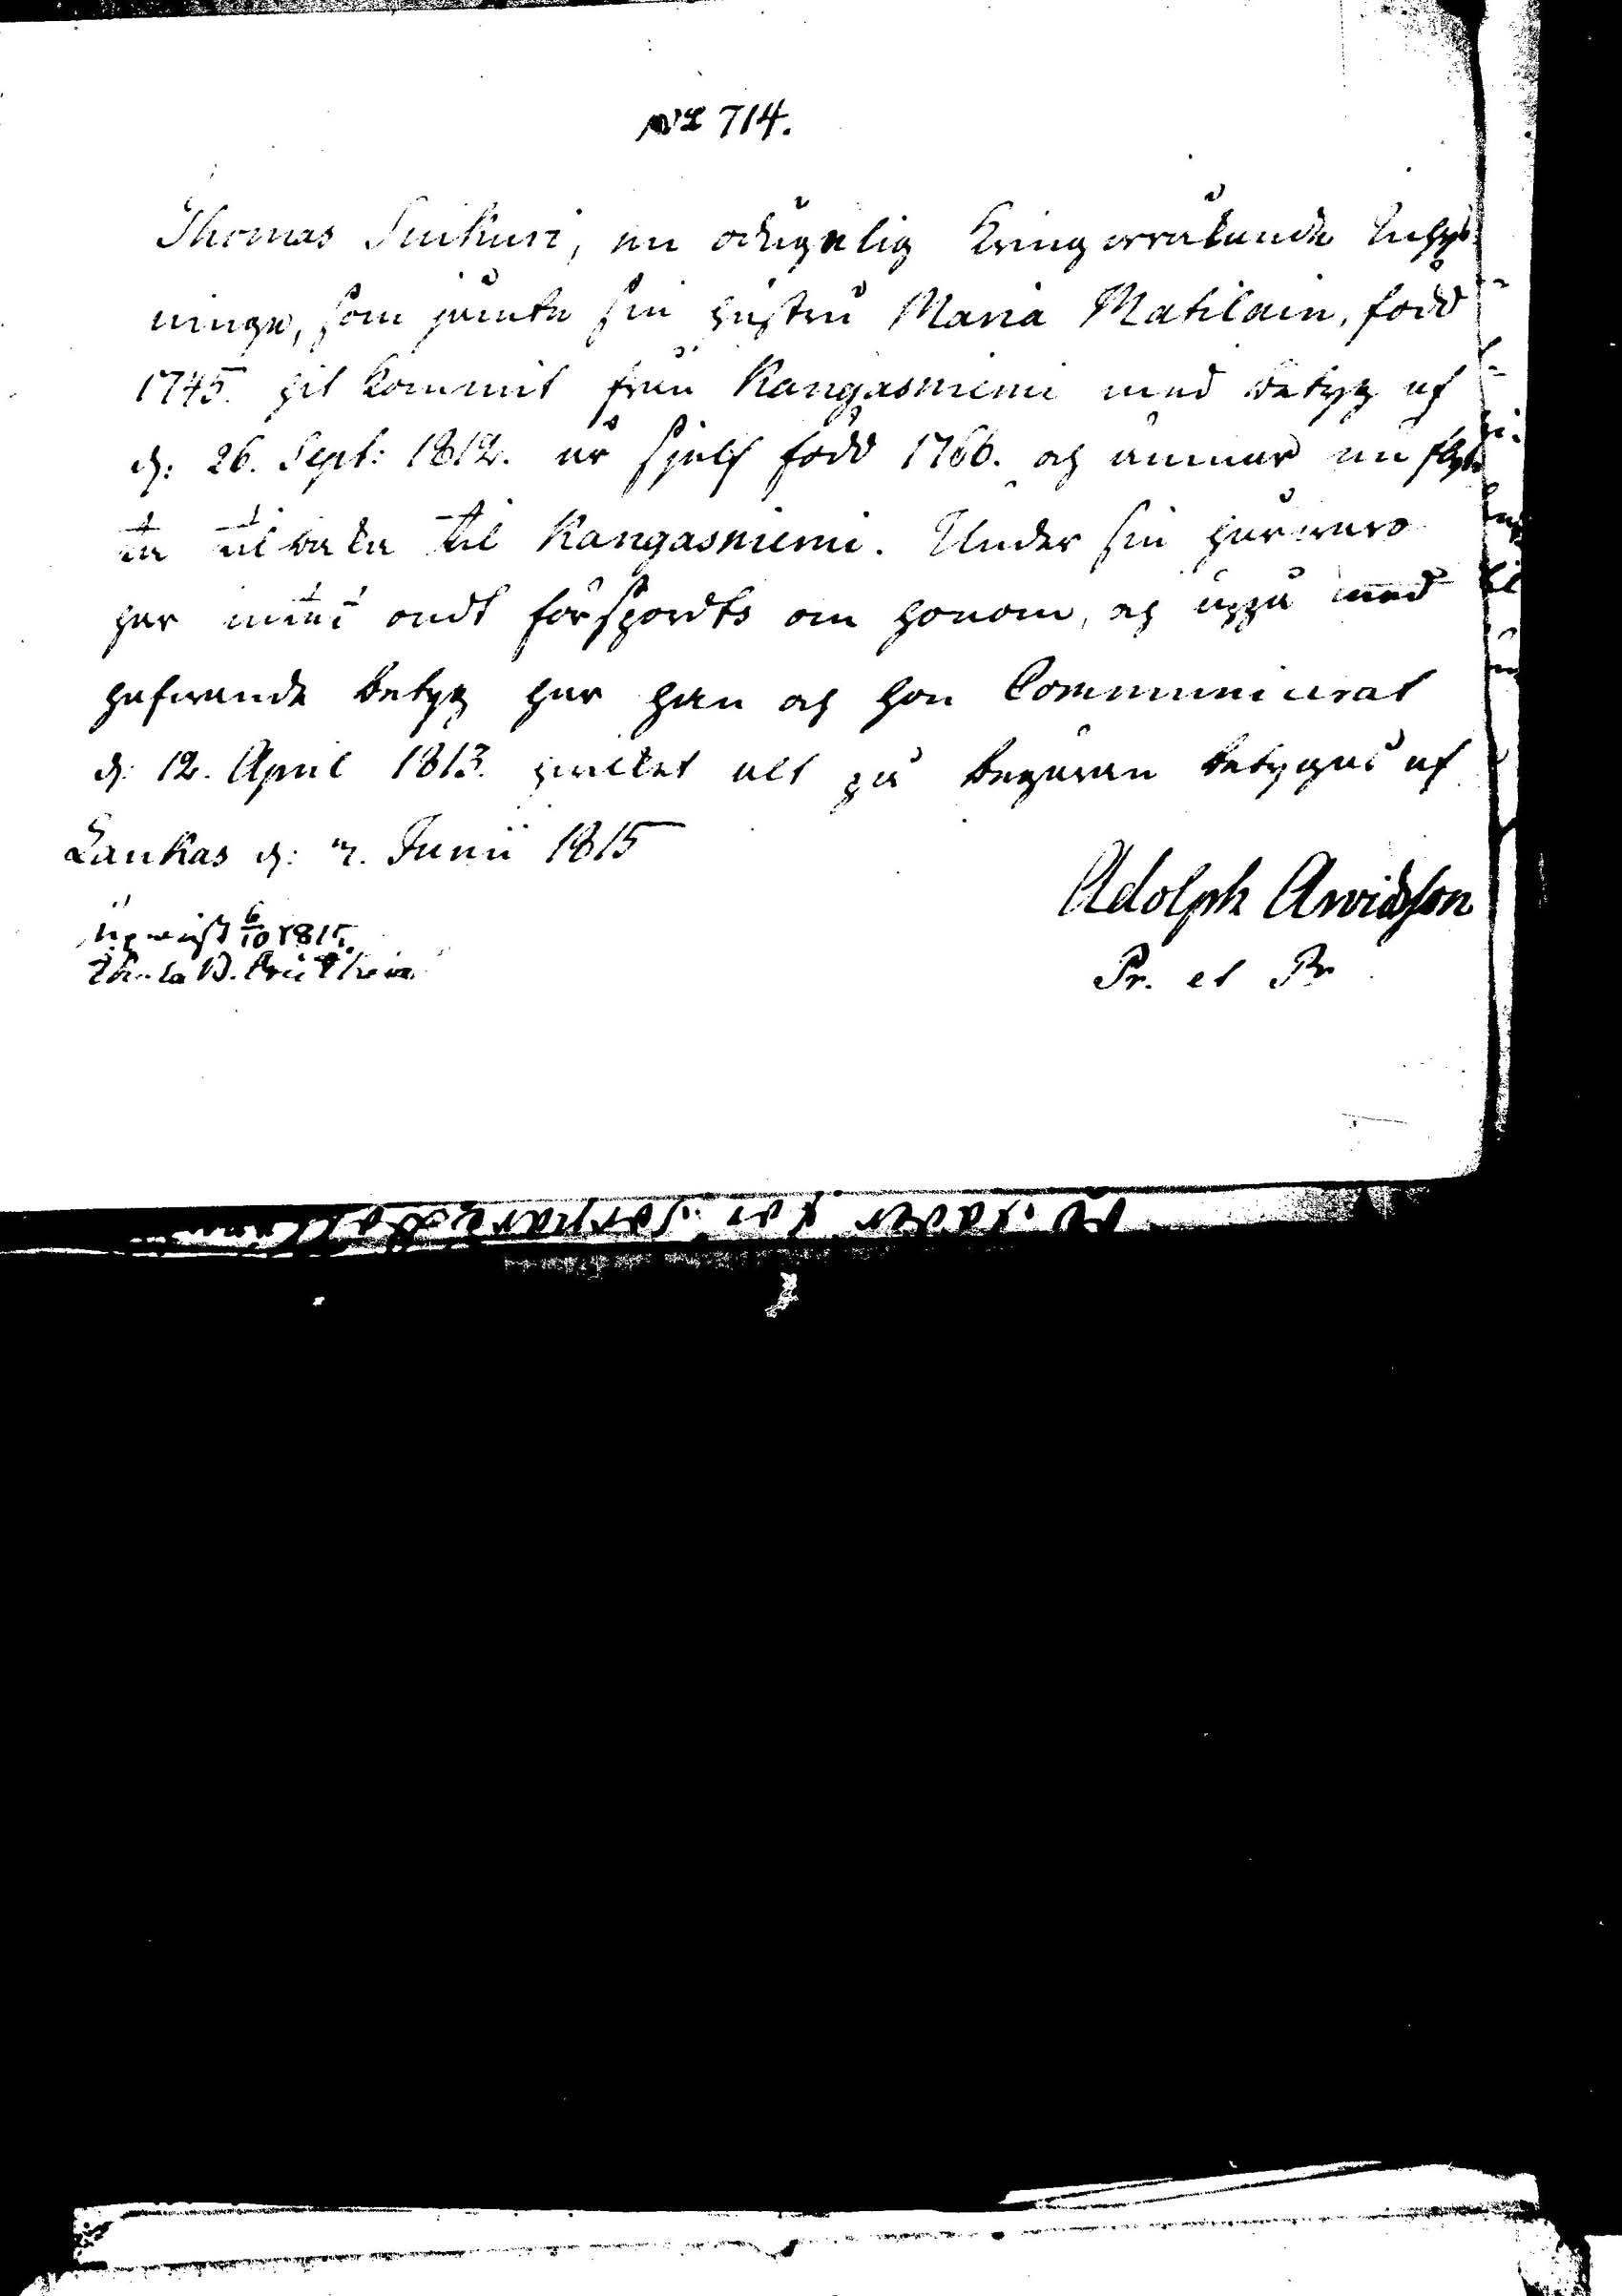 No 714.
Thomas Suikuri, en oduglig kringvrakande Inhys
ninge, som jämte sin hustru Maria Matilain, född
1745. hit kommit från Kangasniemi med betyg af
d: 26. Sept: 1812. är sjelf född 1766. och ämnar nu flyt
ta tilbaka til Kangasniemi. Under sin härvaro
har intet ondt förspordts om honom, och uppå med
hafwande betyg har han och hon Communicerat
d: 12. April 1813. hvilket alt på begäran betygas af
Laukas d: 7. Junii 1815
Adolph Arwidsson
Pr. et Pr
Upwist 6/10 1815.